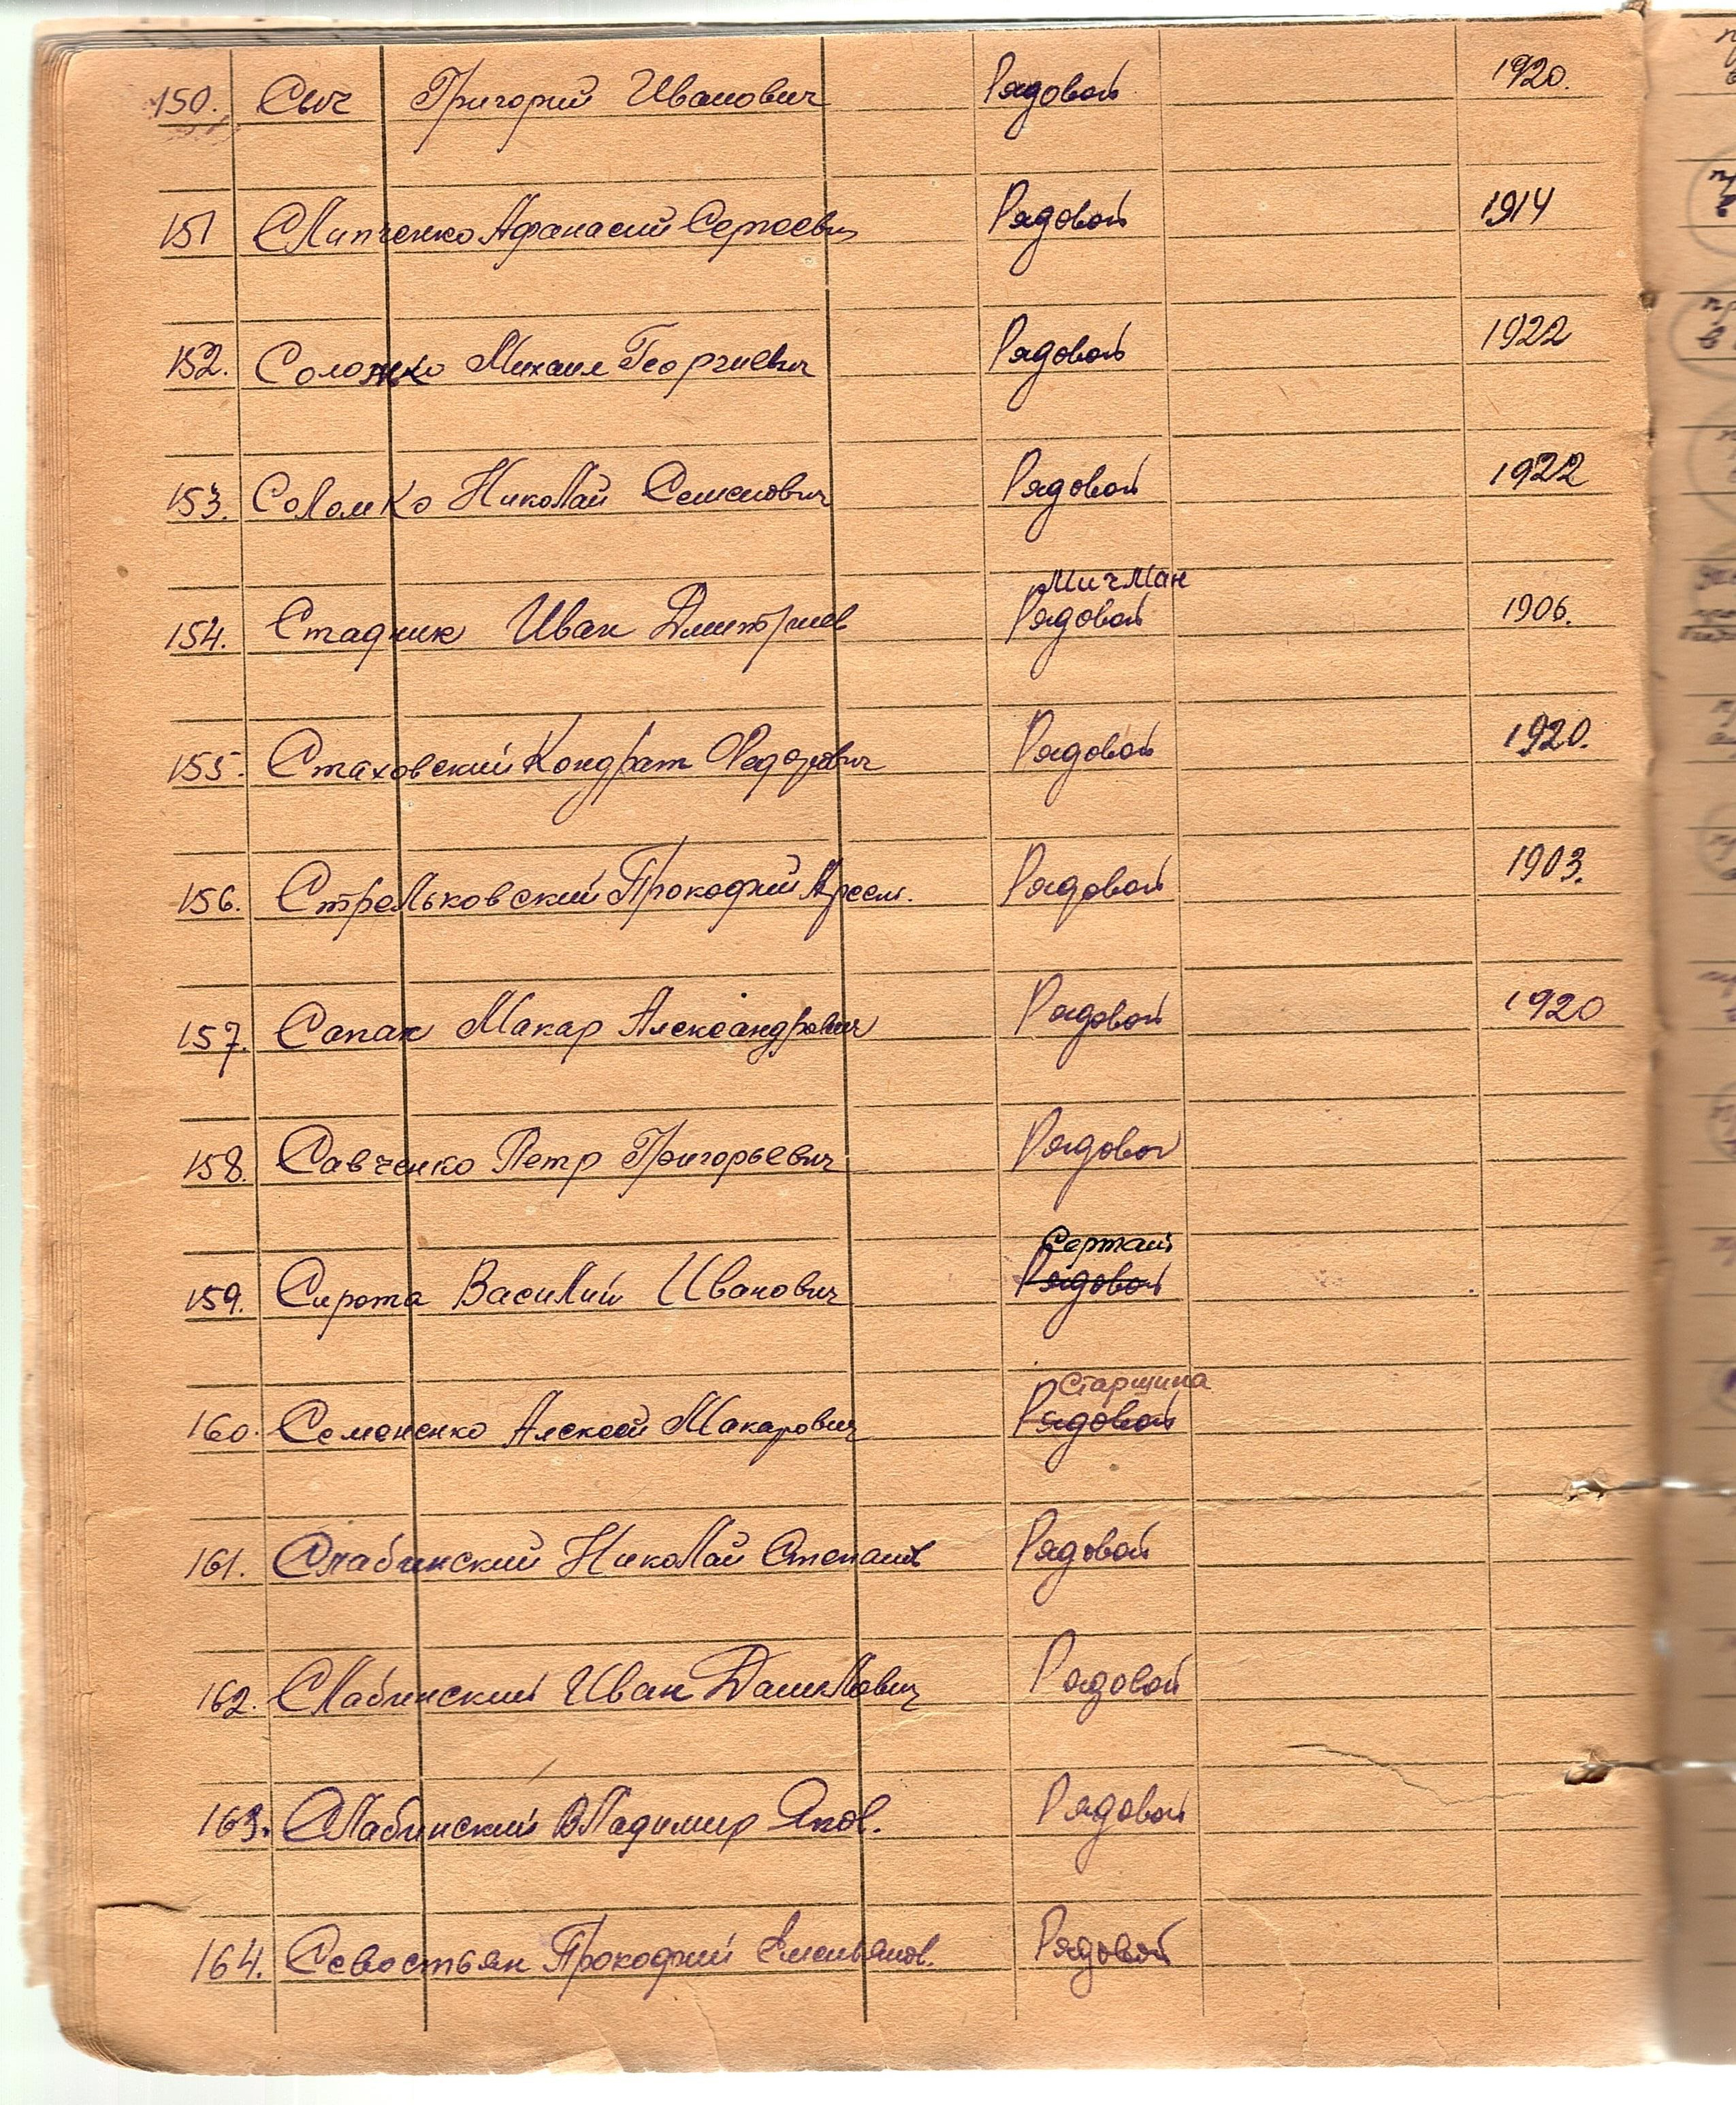 150. Сыч Григорий Иванович Рядовой 1920.
151 Слипченко Афанасий Сергеевич Рядовой 1914
152. Соломко Михаил Георгиевич Рядовой 1922
153. Соломко Николай Семенович Рядовой 1922
Мичман
154. Стадник Иван Дмитриев Рядовой 1906.
155. Стаховский Кондрат Федорович Рядовой 1920.
156. Стрельковский Прокофий Арсен. Рядовой 1903.
157. Сапак Макар Александрович Рядовой 1920
158. Савченко Петр Григорьевич Рядовой
Сержант
159. Сирота Василий Иванович Рядовой
Старшина
160. Семененко Алексей Макарович Рядовой
161. Слабинский Николай Степанов Рядовой
162. Слабинский Иван Данилович Рядовой
163. Слабинский Владимир Яков. Рядовой
164. Севостьян Прокофий Емельянов. Рядовой